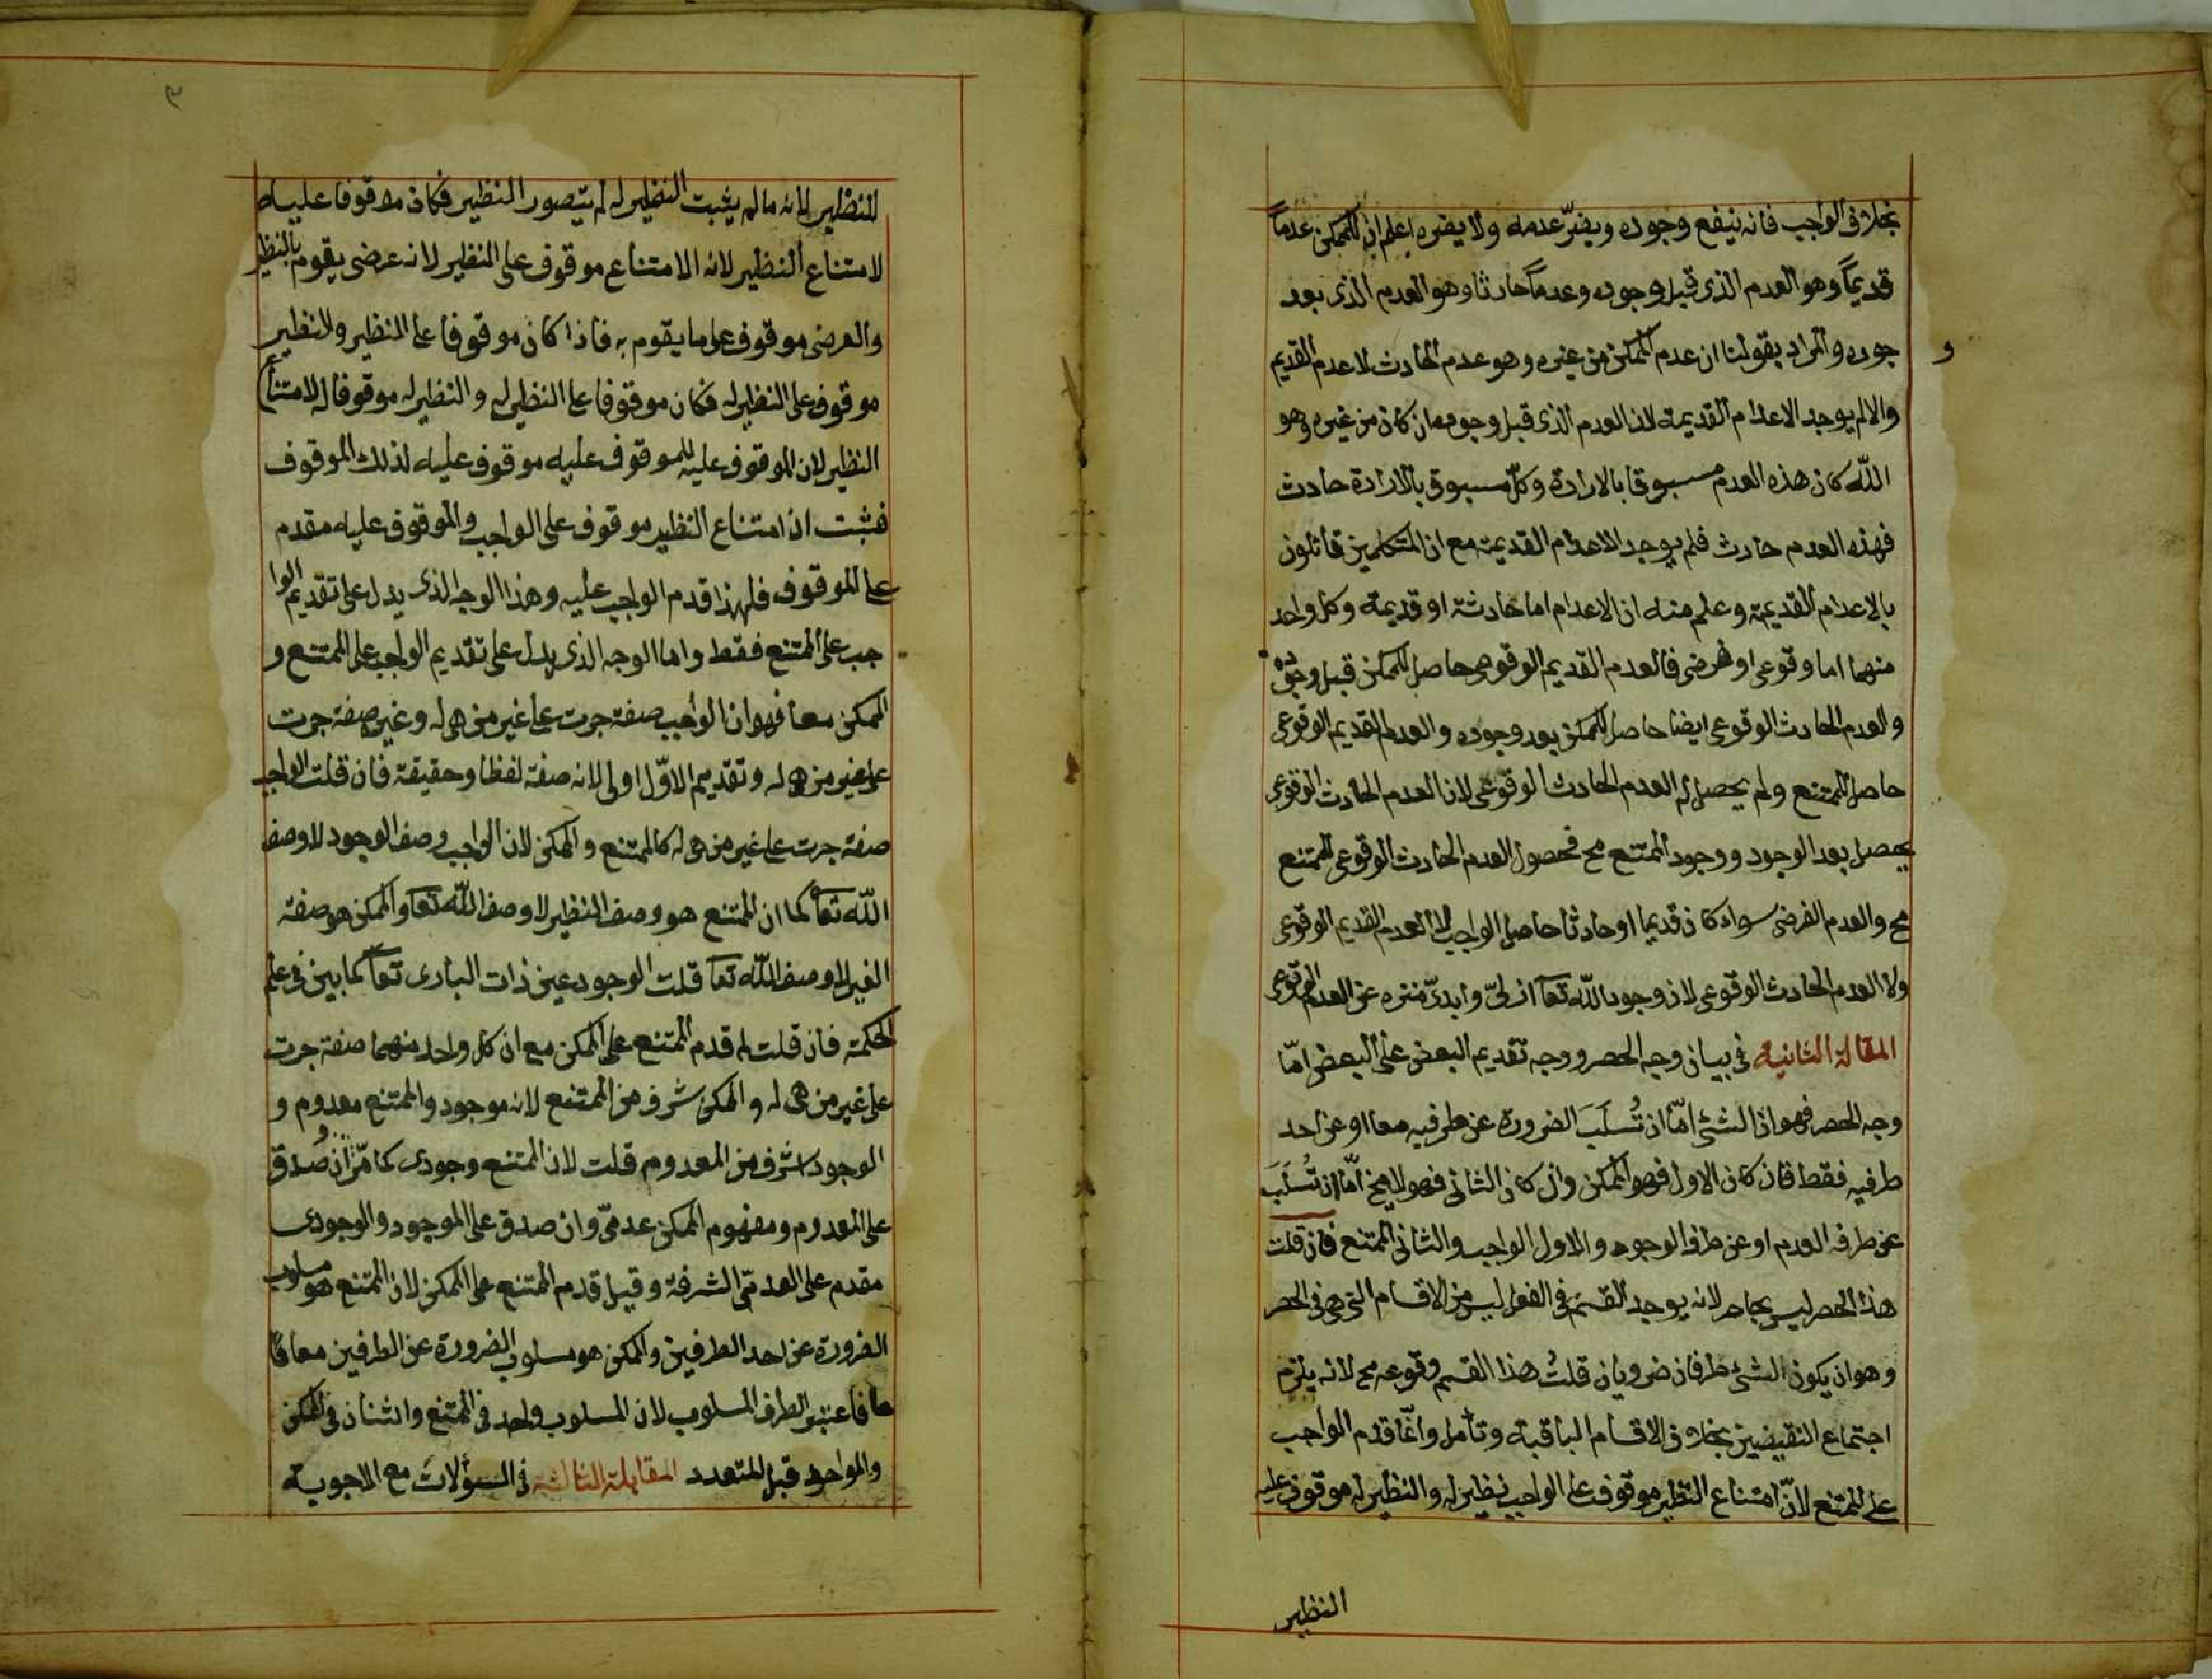 بخلاف الواجب فانه ينفع وجوده ويضرّ عدمه ولا يضره اعلم ان للممكن عدماً
قديماً وهو العدم الذى قبل وجوده وعدماً حادثا وهو العدم الذى بعد
و
جوده والمراد بقولنا ان عدم الممكن من غيره وهو عدم الحادث لا عدم القديم
والا لم يوجد الاعدام القديمة لان العدم الذى قبل وجوده ان كان من غيره وهو
اللّه كان هذه العدم مسبوقا بالارادة وكلّ مسبوق بالارادة حادث
فهذه العدم حادث فلم يوجد الاعدام القديمة مع ان المتكلمين قائلون
بالاعدام القديمة وعلم منه ان الاعدام اما حادثة او قديمة وكل واحد
منهما اما وقوعى او فرضى فالعدم القديم الوقوعى حاصل للممكن قبل وجوده
والعدم الحادث الوقوعى ايضا حاصل للممكن بعد وجوده والعدم القديم الوقوعى
حاصل للممتنع ولم يحصل له العدم الحادث الوقوعى لان العدم الحادث الوقوعى
يحصل بعد الوجود ووجود الممتنع مح فحصول العدم الحادث الوقوعى للممتنع
مح والعدم الفرضى سواء كان قديما او حادثا حاصل الواجب لا العدم القديم الوقوعى
ولا العدم الحادث الوقوعى لان وجود اللّه تعا ازلىّ وابدىّ منزه عن العدم الوقوعى
المقالة الثانية فى بيان وجه الحصر ووجه تقديم البعض على البعض امّا
وجه الحصر فهو ان الشئ امّا ان تُسلَبَ الضرورة عن طرفيه معا او عن احد
طرفيه فقط فان كان الاول فهو الممكن وان كان الثانى فهو لا يخ امّا ان تُسلَبَ
عن طرفه العدم او عن طرفه الوجود والاول الواجب والثانى الممتنع فان قلت
هذا الحصر ليس بحاصر لانه يوجد القسم فى الفعل ليس من الاقسام التى هى فى الحصر
وهو ان يكون الشئ طرفان ضروريان قلتُ هذا القسم وقوعه مح لانه يلزم
اجتماع النقيضين بخلاف الاقسام الباقية وتأمل وانّما قدم الواجب
على الممتنع لانّ امتناع النظير موقوف على الواجب نظير له والنظير له موقوف عليه
النظير
٣
للنظير لانه ما لم يثبت النظير له لم يتصور النظير فكان موقوفا عليه
لامتناع النظير لانه الامتناع موقوف على النظير لانه عرضى يقوم بالنظير
والعرضى موقوف على ما يقوم به فاذا كان موقوفا على النظير والنظير
موقوف على النظير له فكان موقوفا على النظير له والنظير له موقوفا له لامتناع
النظير لان الموقوف عليه للموقوف عليه موقوف عليه لذلك الموقوف
فثبت ان امتناع النظير موقوف على الواجب والموقوف عليه مقدم
على الموقوف فلهذا قدم الواجب عليه وهذا الوجه الذى يدل على تقديم الوا
جب على الممتنع فقط واما الوجه الذى يدل على تقديم الواجب على الممتنع و
الممكن معا فهو ان الواجب صفة جرت على غير من هى له وغير صفة جرت
على غير من هى له وتقديم الاوّل اولى لانه صفة لفظا وحقيقة فان قلت الواجب
صفة جرت على غير من هى له كالممتنع والممكن لان الواجب وصف الوجود لا وصف
اللّه تعا كما ان الممتنع هو وصف النظير لا وصف اللّه تعا والممكن هو صفة
الغير لا وصف اللّه تعا قلت الوجود عين ذات البارى تعا كما بين فى علم
الحكمة فان قلت لم قدم الممتنع على الممكن مع ان كل واحد منهما صفة جرت
على غير من هى له والممكن شرف من الممتنع لانه موجود والممتنع معدوم و
الموجود اشرف من المعدوم قلت لان الممتنع وجودى كما مرّ وان صُدق
على المعدوم ومفهوم الممكن عدمىّ وان صدق على الموجود والوجودى
مقدم على العدمىّ الشرفة وقيل قدم الممتنع على الممكن لان الممتنع هو مسلوب
الضرورة عن احد الطرفين والممكن هو مسلوب الضرورة عن الطرفين معا
فاعتبر الطرف المسلوب لان المسلوب واحد فى الممتنع واثنان فى الممكن
والواحد قبل المتعدد المقابلة الثالثة فى السؤلات مع الاجوبة